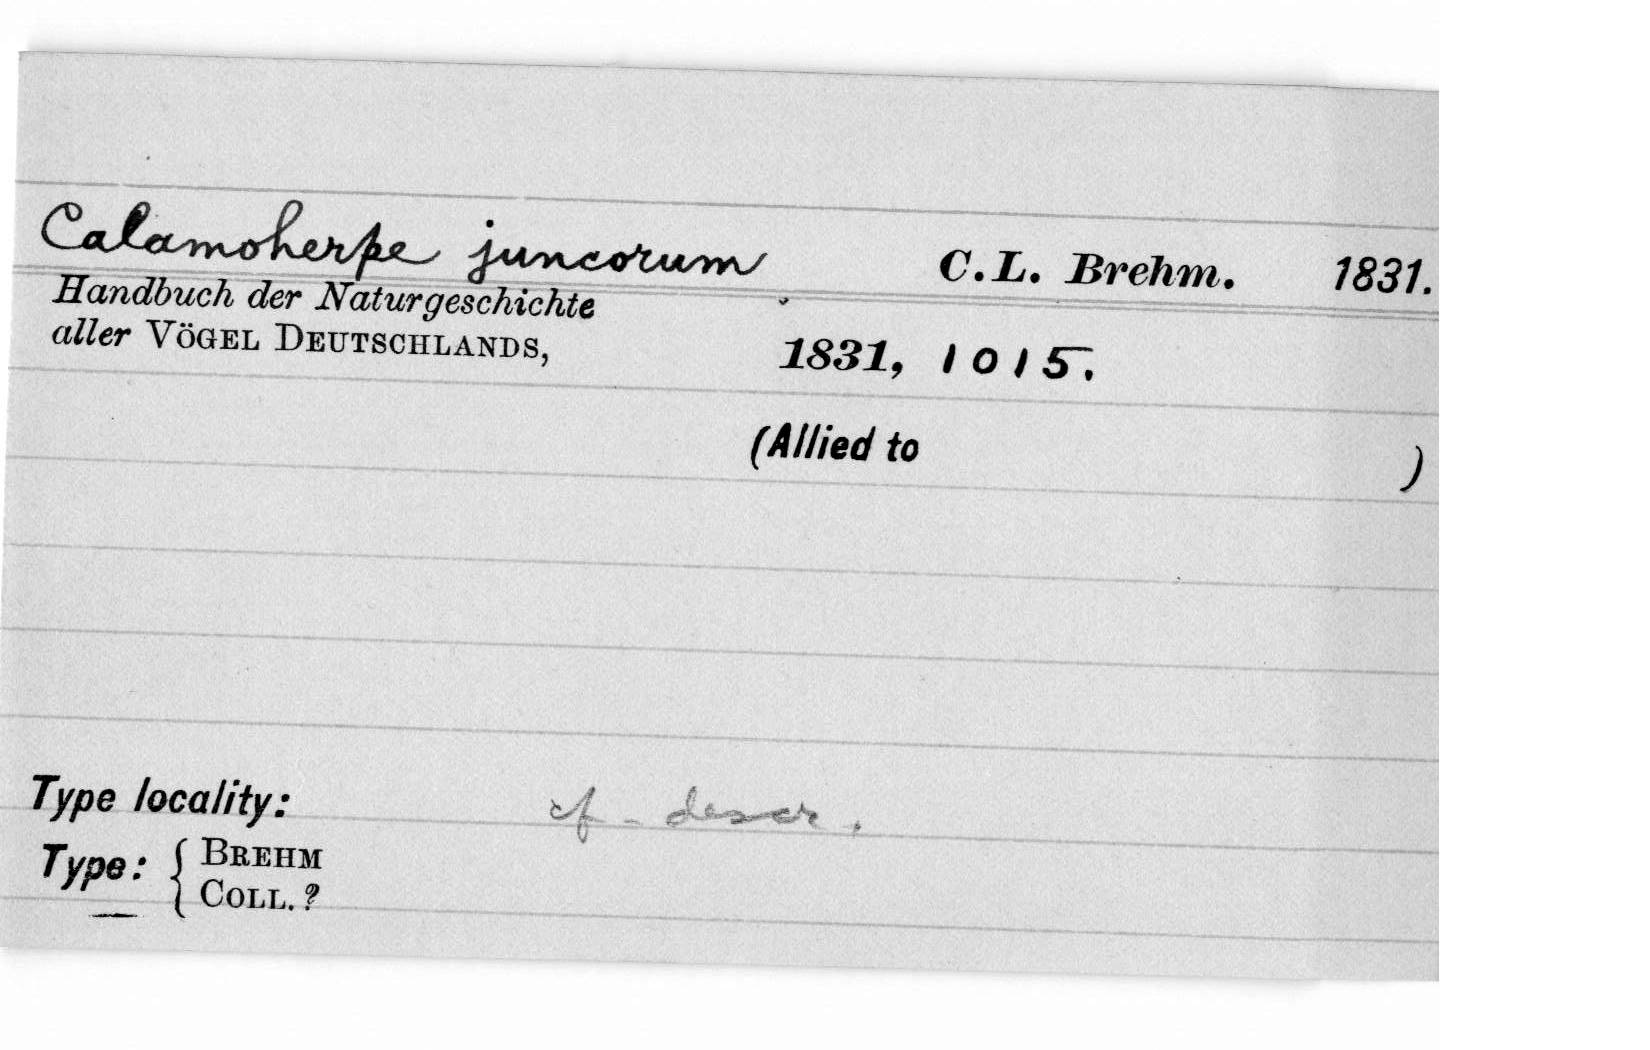 Calamoherpe juncorum C.L. Brehm. 1831.
Handbuch der Naturgeschichte
aller VÖGEL DEUTSCHLANDS, 1831, 1015.
(Allied to )
Type locality: cf. descr.
Type: { BREHM
COLL. ?